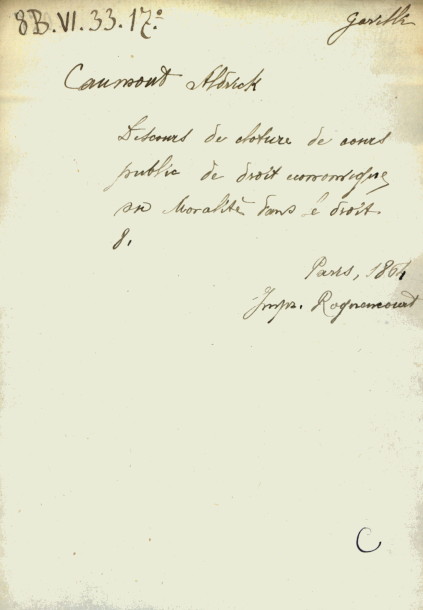 8B.VI.33.17º
Caumont Aldrick
Discours de cloture de cours
public de droit economique
Moralité dans le droit.
8.
Paris, 1864
Impr. Roquencourt
C